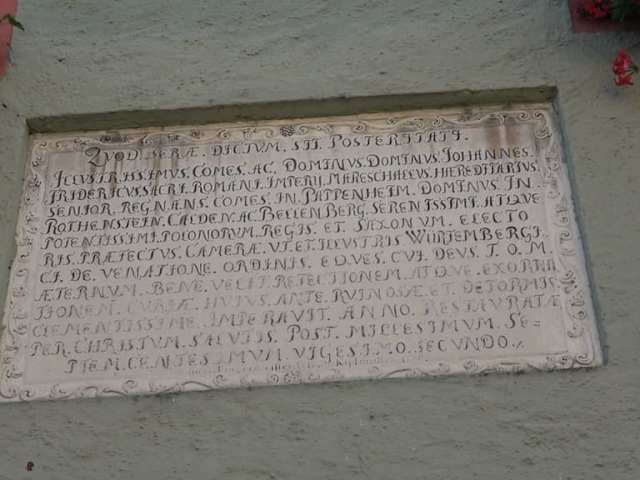 QVOD. SERÆ. DICTVM. SIT. POSTERITATI.
ILLVSTRISSIMVS. COMES. AC. DOMINVS. DOMINVS. IOHANNES.
FRIDERICVS. SACRI. ROMANI. IMPERIJ. MARESCHALLVS. HÆREDITARIVS
SENIOR. REGNANS. COMES. IN. PAPPENHEIM. DOMINVS. IN.
ROTHENSTEIN. CALDEN. AC. BELLENBERG. SERENISSIMI. ATQVE
POTENTISSIMI. POLONORVM. REGIS. ET. SAXONVM. ELECTO
RIS. PRÆFECTVS. CAMERÆ. VT. ET. ILLVSTRIS. WÜRTEMBERGI.
CI. DE. VENATIONE. ORDINIS. EQVES. CVI. DEVS. T. O. M.
ÆTERNVM. BENE. VELIT. REFECTIONEM. ATQVE. EXORNA
TIONEM. CVRIÆ. HVIVS. ANTE. RVINOSÆ. ET. DEFORMIS
CLEMENTISSIME. IMPERAVIT. ANNO. RESTAVRATÆ
PER. CHRISTVM. SALVTIS. POST. MILLESIMVM. SE=
PTEM. CENTESIMVM. VIGESIMO. SECVNDO.